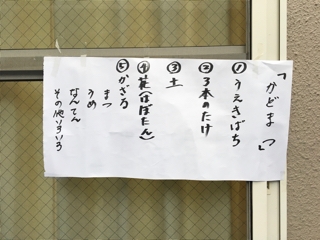 「かどまつ」
①うえきばち
②3本のたけ
③土
④花(はぼたん)
⑤かざる
まつ
うめ
なんてん
その他いろいろ